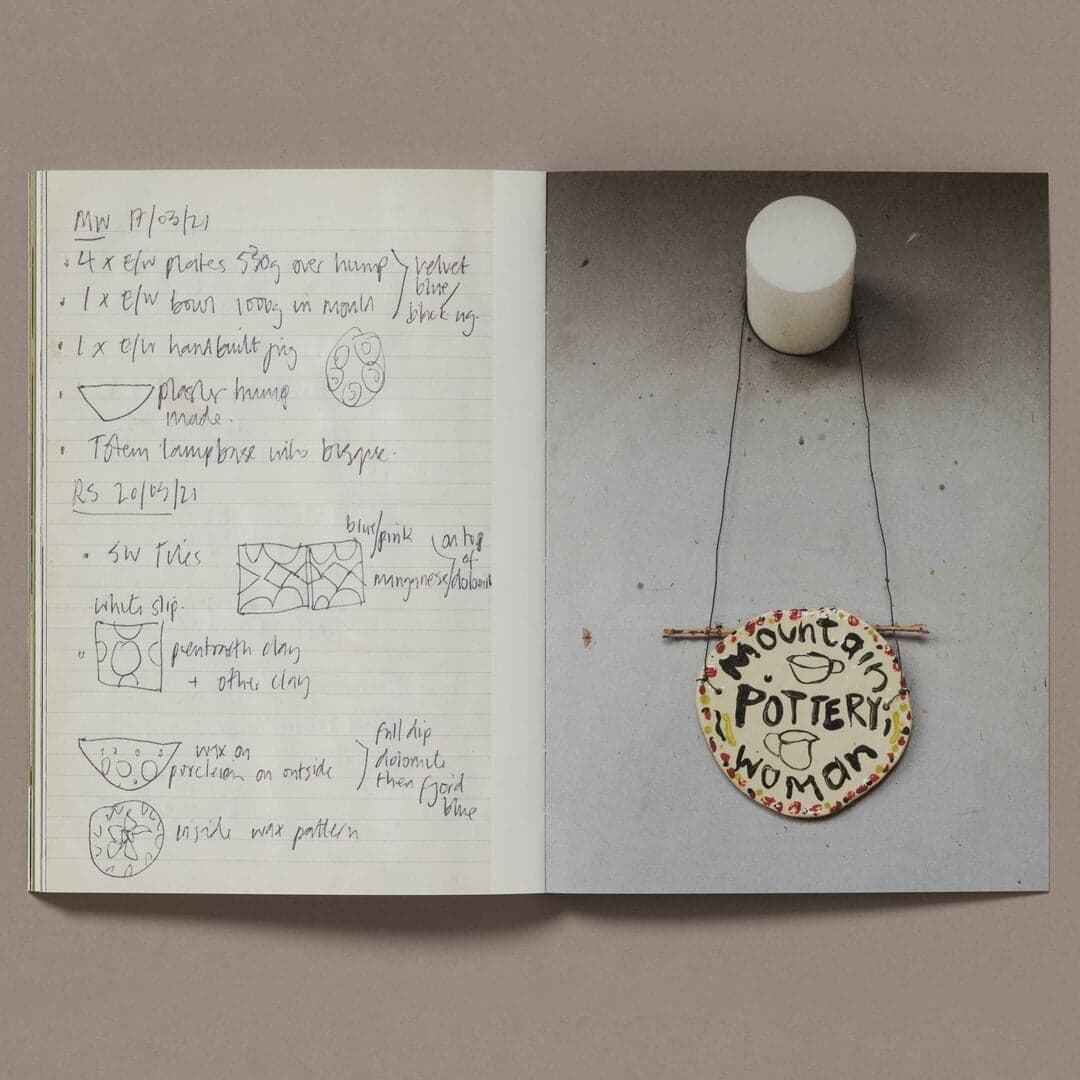 MW 17/03/21
• 4 x E/W plates 530g over hump
• 1 x E/W bowl 1000g in mould
velvet
blue/
black ug.
• 1 x E/W handbuilt jug
• plaster hump
made.
• Totem lampbase into bisque.
RS 20/03/21
• SW Tiles
blue/pink
manganese/dolomit
on top
of
white slip.
clay
+ other clay
wax on
porcelain on outside
full dip
dolomite
then fjord
blue
inside wax pattern
Mountain
POTTERY
WOMAN